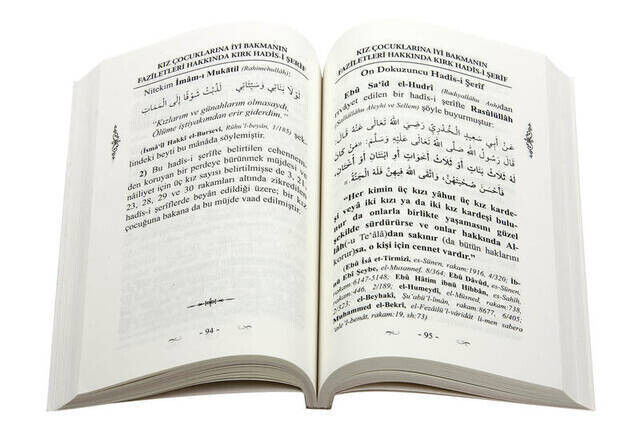 KIZ ÇOCUKLARINA İYİ BAKMANIN
FAZİLETLERİ HAKKINDA KIRK HADÎS-İ ŞERÎF
Nitekim İmâm-ı Mukâtil (Rahimehullâh):
لَوْلَا بَنَاتِي وَسَيِّئَاتِي لَذُبْتُ شَوْقًا إِلَى الْمَمَاتِ
"Kızlarım ve günahlarım olmasaydı,
Ölüme iştiyakımdan erir giderdim."
(İsmâ'îl Hakkî el-Bursevî, Rûhu'l-beyân, 1/185) şek-
lindeki beyti bu mânâda söylemiştir.
2) Bu hadîs-i şerîfte belirtilen cehennem-
den koruyan bir perdeye bürünmek müjdesi ve
nâiliyet için üç kız sayısı belirtilmişse de 3, 21,
23, 28, 29 ve 30 rakamları altında zikredilen
hadîs-i şerîflerde beyân edildiği üzere; bir kız
çocuğuna bakana da bu müjde vaad edilmiştir.
- 94 -
KIZ ÇOCUKLARINA İYİ BAKMANIN
FAZİLETLERİ HAKKINDA KIRK HADÎS-İ ŞERÎF
On Dokuzuncu Hadîs-i Şerîf
Ebû Sa'îd el-Hudrî (Radıyallâhu Anh)dan
rivâyet edilen bir hadîs-i şerîfte Rasûlüllâh
(Sallâllâhu Aleyhi ve Sellem) şöyle buyurmuştur:
عَنْ أَبِي سَعِيدٍ الْخُدْرِيِّ رَضِيَ اللَّهُ تَعَالَى عَنْهُ قَالَ:
قَالَ رَسُولُ اللَّهِ صَلَّى اللَّهُ تَعَالَى عَلَيْهِ وَسَلَّمَ: «مَنْ كَانَ
لَهُ ثَلَاثُ بَنَاتٍ أَوْ ثَلَاثُ أَخَوَاتٍ أَوِ ابْنَتَانِ أَوْ أُخْتَانِ،
فَأَحْسَنَ صُحْبَتَهُنَّ، وَاتَّقَى اللَّهَ فِيهِنَّ فَلَهُ الْجَنَّةُ.»
"Her kimin üç kızı yâhut üç kız karde-
şi veyâ iki kızı ya da iki kız kardeşi bulu-
nur da onlarla birlikte yaşamasını güzel
şekilde sürdürürse ve onlar hakkında Al-
lâh(-u Te'âlâ)dan sakınır (da bütün haklarını
korur)sa, o kişi için cennet vardır."
(Ebû Îsâ et-Tirmizî, es-Sünen, rakam:1916, 4/320; İb-
nü Ebî Şeybe, el-Musannef, 8/364; Ebû Dâvûd, es-Sünen,
rakam:5147-5148; Ebû Hâtim ibnü Hibbân, es-Sahîh,
rakam:446, 2/189; el-Humeydî, el-Müsned, rakam:738,
2/323; el-Beyhakî, Şu'abü'l-îmân, rakam:8677, 6/405;
Muhammed el-Bekrî, el-Fezâilü'l-vâridât li-men sabera
'ale'l-benât, rakam:19, sh:73)
- 95 -